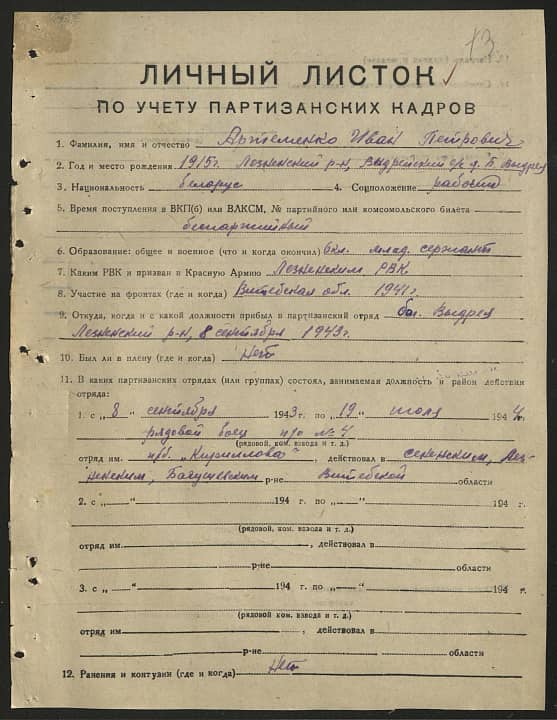 13
ЛИЧНЫЙ ЛИСТОК
ПО УЧЕТУ ПАРТИЗАНСКИХ КАДРОВ
1. Фамилия, имя и отчество Артеменко Иван Петрович
2. Год и место рождения 1915г. Лезненский р-н, Выдрейский с/с д. Б. Выдрея
3. Национальность беларус 4. Соцположение рабочий
5. Время поступления в ВКП(б) или ВЛКСМ, № партийного или комсомольского билета
беспартийный
6. Образование: общее и военное (что и когда окончил) 6кл. млад. сержант
7. Каким РВК и призван в Красную Армию Лезненским РВК.
8. Участие на фронтах (где и когда) Витебская обл. 1941г.
9. Откуда, когда и с какой должности прибыл в партизанский отряд Выдрея
Лезненский р-н, 8 сентября 1943г.
10. Был ли в плену (где и когда) Нет
11. В каких партизанских отрядах (или группах) состоял, занимаемая должность и район действия
отряда:
1. с „ 8 “ сентября 1943г. по „ 19 “ июля 1944.
рядовой боец п/о № 4
(рядовой, ком. взвода и т. д.)
отряд им. п/б. „Кириллова“, действовал в сененским, Лез-
ненским, Богушевским р-не Витебской области
2. с „ “ 194 г. по „ “ 194 г.
(рядовой, ком. взвода и т. д.)
отряд им. , действовал в
р-не области
3. с „ “ 194 г. по „ “ 194 г.
(рядовой, ком. взвода и т. д.)
отряд им. , действовал в
р-не области
12. Ранения и контузии (где и когда) Нет